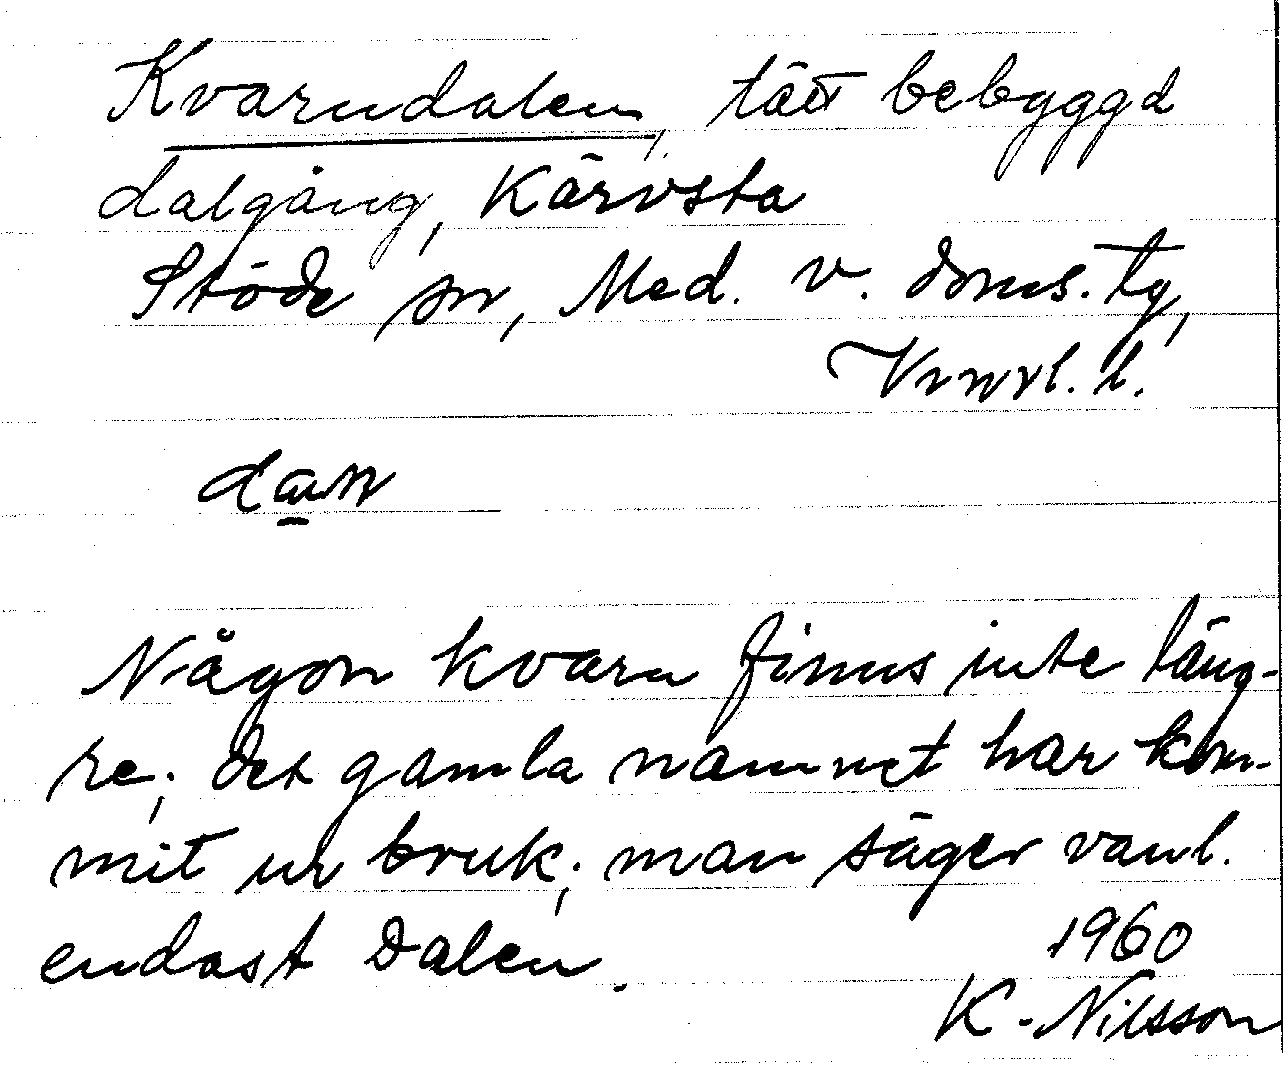 Kvarndalen, tätt bebyggd
dalgång, Kärvsta
Stöde sn, Med. v. doms. tg,
Vrnrl. l.
Någon kvarn finns inte läng-
re; det gamla namnet har kom-
mit ur bruk; man säger vanl.
endast Dalen.
1960
K. Nilsson